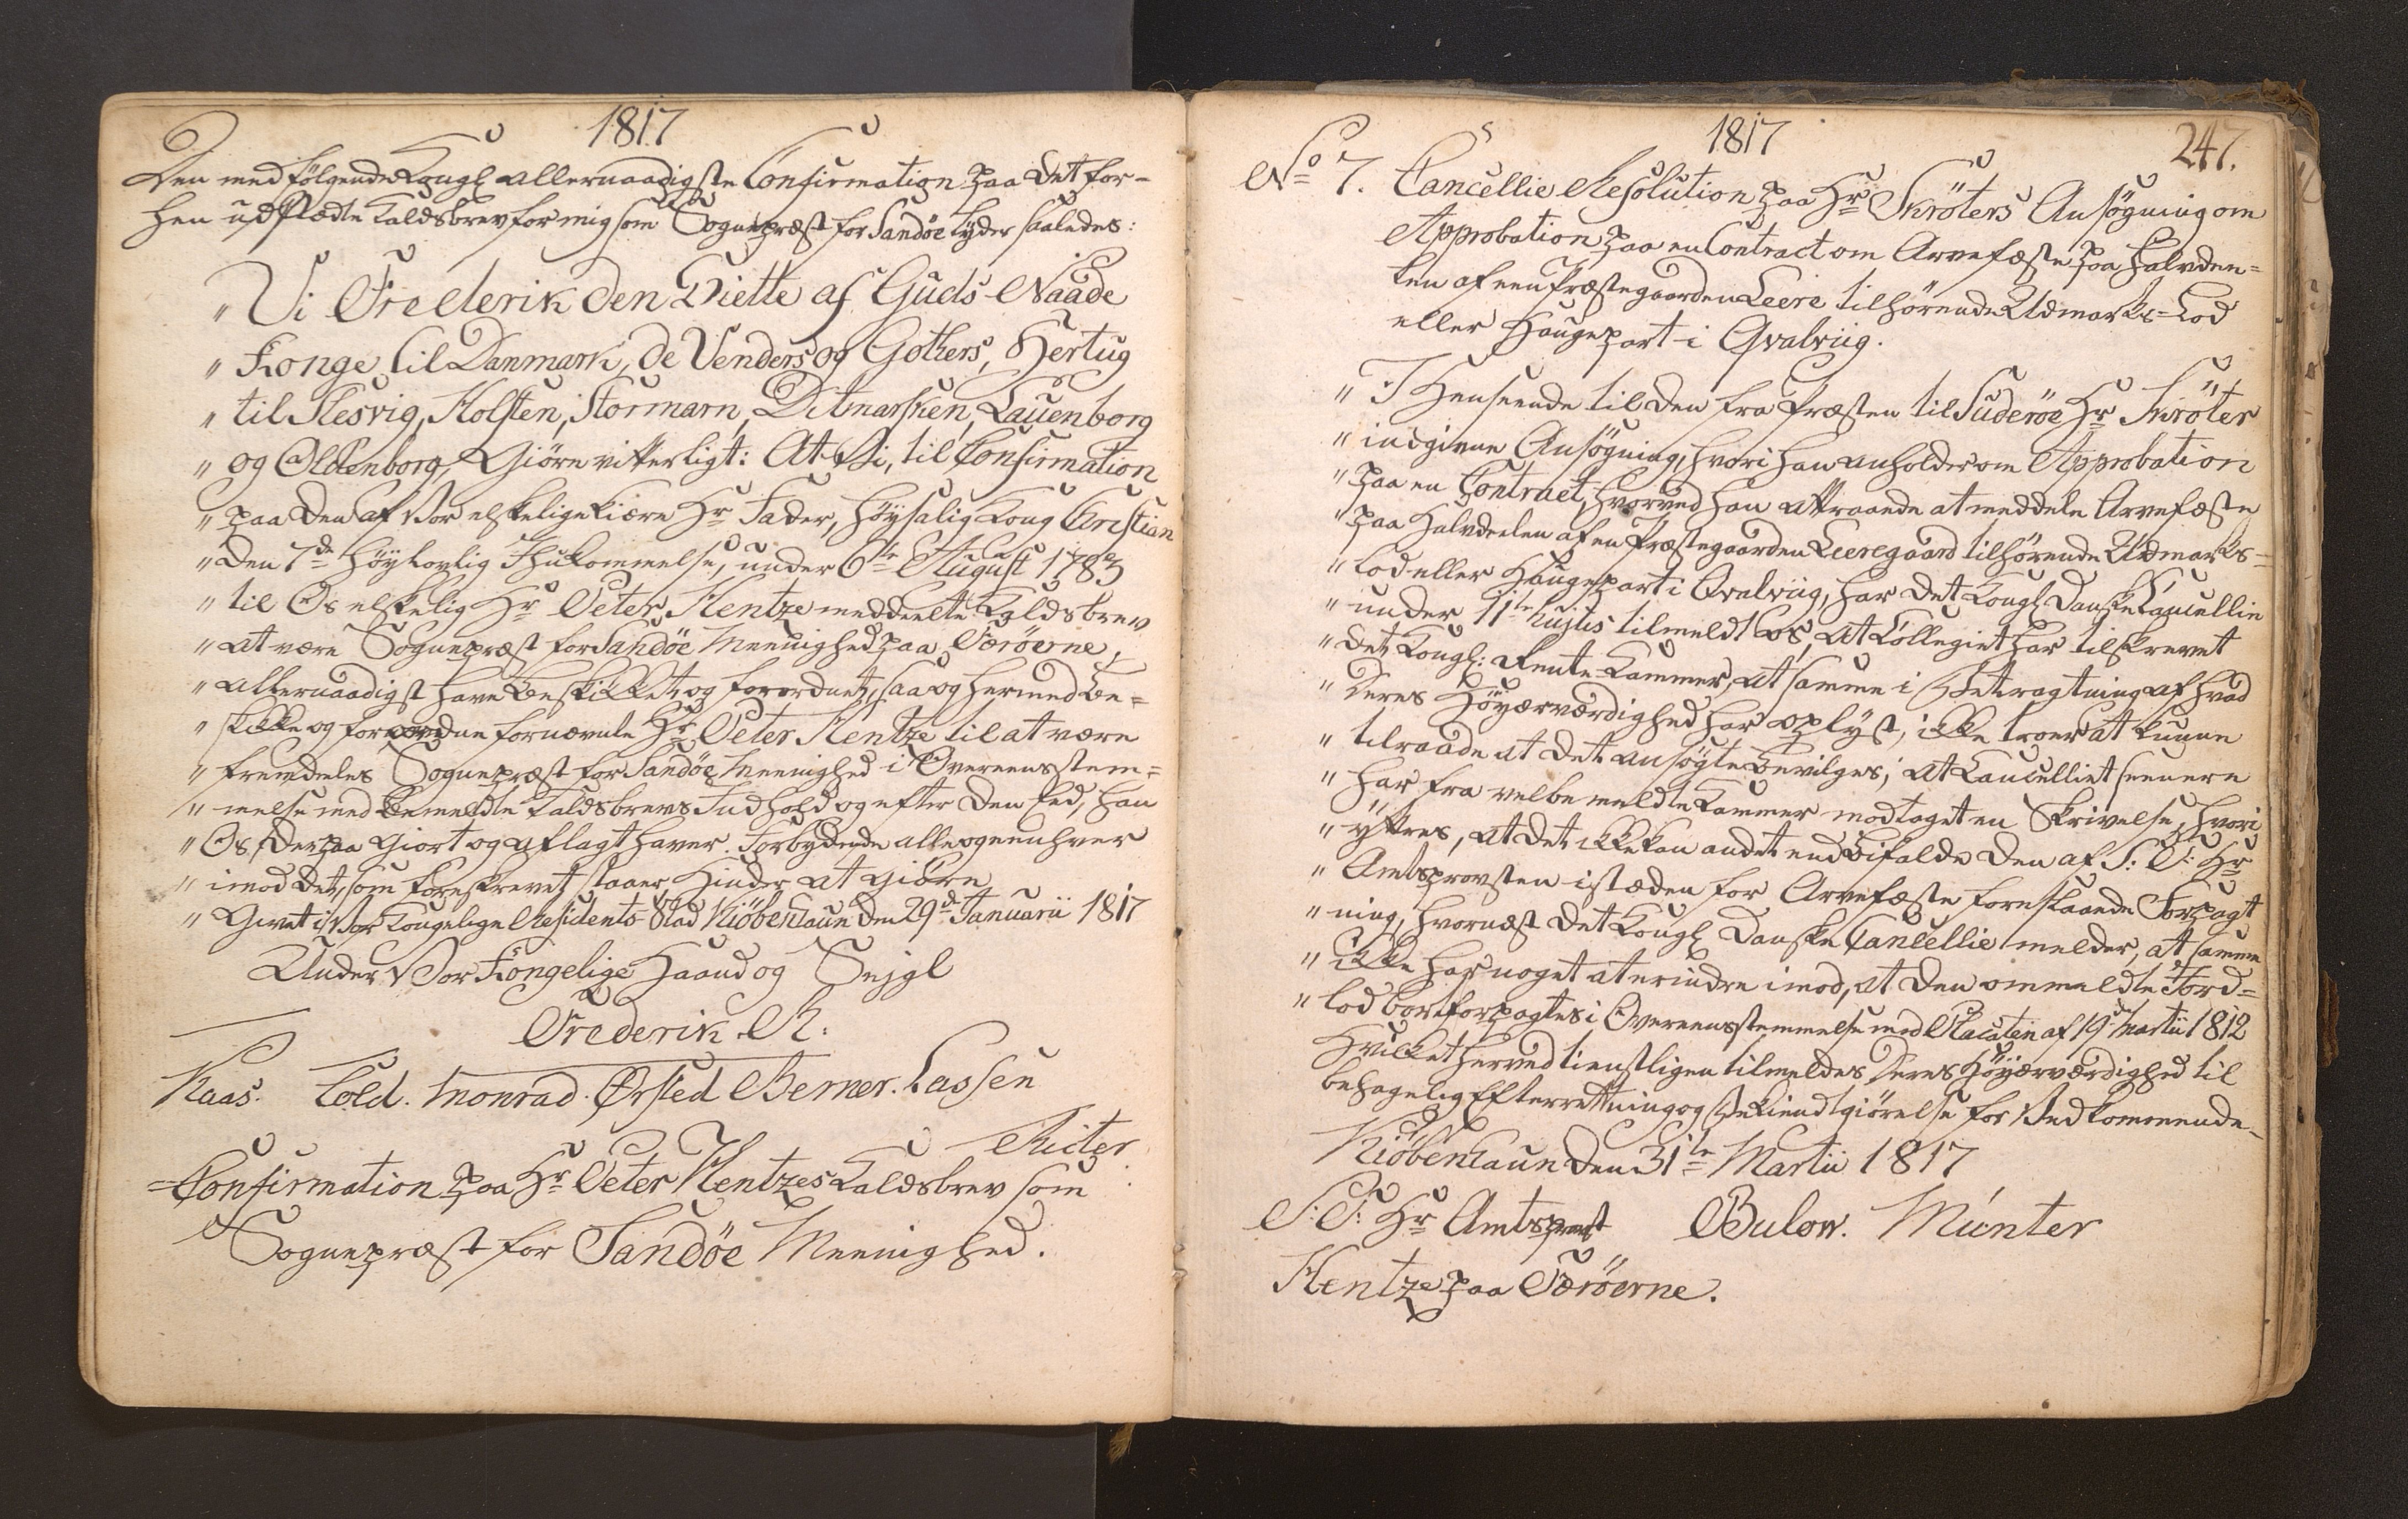 1817
Den med følgende Kongl allernaadigste Confirmation paa det for-
hen udstædte Kaldsbrev for mig som Sognepræst for Sandöe lyder saaledes:
" Vi Frederik den Siette af Guds Naade
" Konge til Danmark, de Venders og Gothers, Hertug
" til Slesvig, Holsten, Stormarn, Ditmarsken, Lauenborg
" og Oldenborg, Giøre vitterligt: At Vi, til Confirmation
" paa den af Vor elskelige kiære Hr Fader, Høysalig Kong Christian
" den 7de Høylovlig Ihukommelse, under 6te August 1783
" til Os elskelig Hr Peter Hentze meddeelte Kaldsbrev
" at være Sognepræst for Sandöe Meenighed paa Færöerne,
" allernaadigst have beskikket og forordnet, saa og hermed be=
" skikke og forordne fornævnte Hr Peter Hentze til at være
" fremdeles Sognepræst for Sandöe Meenighed i Overeensstem=
" melse med bemeldte Kaldsbrevs Indhold og efter den Eed, han
" Os derpaa giort og aflagt haver. Forbydende alle og eenhver
" imod det, som foreskrevet staaer, Hinder at giöre
" Givet i Vor Kongelige Residents Stad Kiöbenhaun den 29de Januarii 1817
Under Vor Kongelige Haand og Seigl
Frederik R.
Kaas. Cold. Monrad. Ørsted Berner. Lassen
Ricter
=Confirmation paa Hr Peter Hentzes Kaldsbrev som
Sognepræst for Sandöe Meenighed.
1817
247.
No 7. Cancellie Resolution paa Hr Skröters Ansøgning om
Approbation paa en Contract om Arvefæste paa Halvdee=
len af een Præstegaarden Leere tilhörende Udmarks=Lod
eller Haugepart i Qvalviig.
" I Henseende til den fra Præsten til Suderöe Hr Skröter
" indgivne Ansøgning, hvori han anholder om Approbation
" paa en Contract, hvorved han attraaede at meddele Arvefæste
" paa Halvdeelen af en Præstegaarden Leeregaard tilhörende Udmarks=
" lod eller Haugepart i Qvalviig, har det Kongl Danske Cancellie
" under 11te hujus tilmeldt Os, at Collegiet har tilskrevet
" det Kongl: Rente-Kammer, at samme i Betragtning af hvad
" Deres Höyærværdighed har oplyst, ikke troer at kunne
" tilraade at det ansøgte bevilges; at Cancelliet seenere
" har fra velbemeldte Kammer modtaget en Skrivelse, hvori
" yttres, at det ikke kan andet end bifalde den af S: T: Hr
" Amtsprovsten istæden for Arvefæste foreslaaede Forpagt
" ning, hvornæst det Kongl Danske Cancellie melder, at samme
" ikke har noget at erindre imod, at den ommeldte Jord=
" lod bortforpagtes i Overeensstemmelse med Placaten af 19de Martii 1812
Hvilket herved tienstligen tilmeldes Deres Höyærværdighed til
behagelig Efterretning og Bekiendtgiörelse for Vedkommende_
Kiöbenhaun den 31te Martii 1817
S: T: Hr Amtsprovst Bulow. Münter
Hentze paa Færöerne.